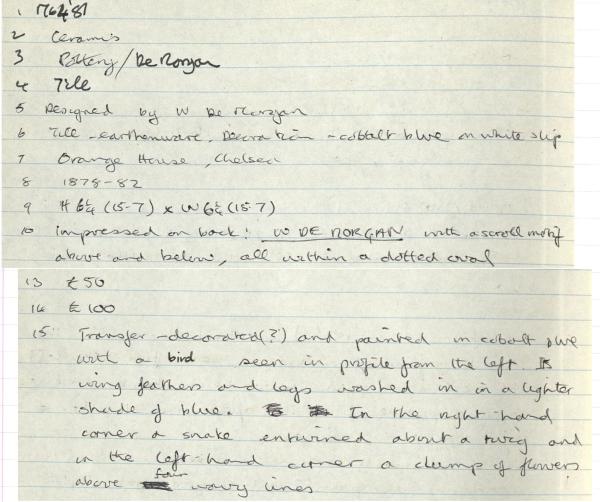 1 176481
2 Ceramics
3 Pottery/De Morgan
4 Tile
5 Designed by W De Morgan
6 Tile - earthenware. Decoration - cobalt blue on white slip
7 Orange House, Chelsea
8 1878-82
9 H 6¼ (15.7) x W 6¼ (15.7)
10 Impressed on back: W DE MORGAN with a scroll motif
above and below, all within a dotted oval
13 £50
14 £100
15 Transfer-decorated(?) and painted in cobalt blue
with a bird seen in profile from the left. Its
wing feathers and legs washed in in a lighter
shade of blue. In the right hand
corner a snake entwined about a twig and
in the left-hand corner a clump of flowers
above four wavy lines